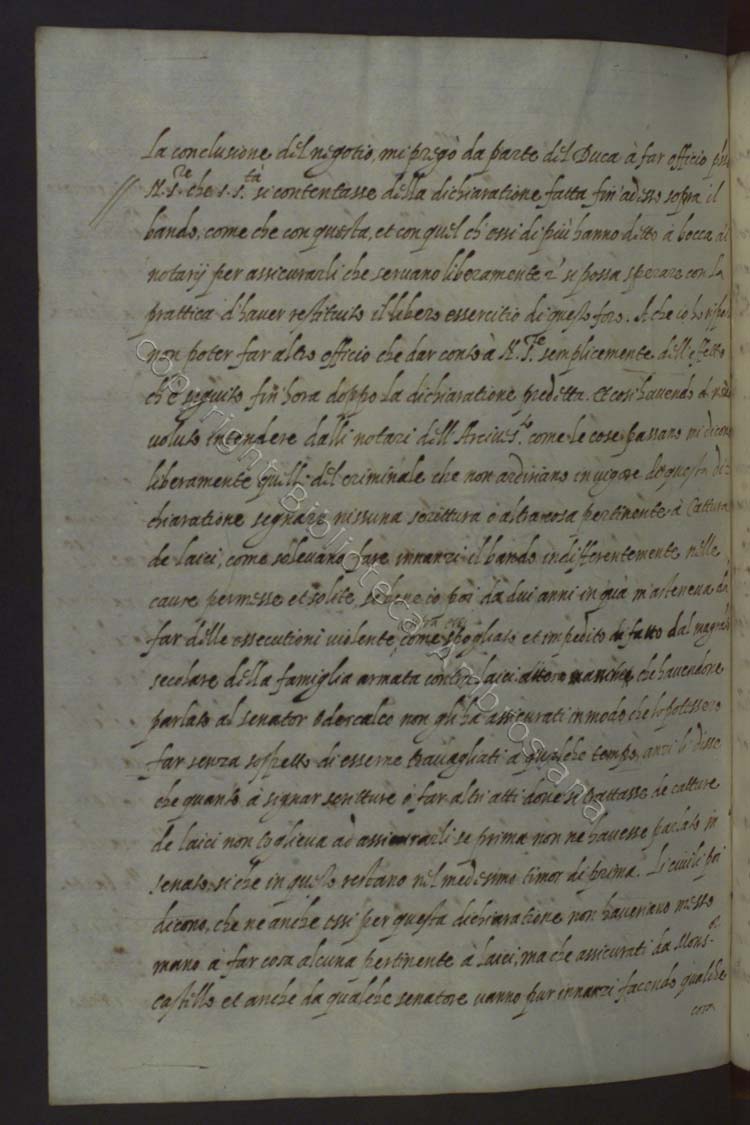 La conclusione del negotio, mi pregò da parte del Duca à far officio
N. S.re che S. S.tà si contentasse della dichiaratione fatta fin'adesso sopra il
bando, come che con questa, et con quel ch'essi di più hanno ditto à bocca ai
notarij per assicurarli che seruano liberamente si possa sperare con la
prattica d'hauer restituito il libero essercitio di questo foro. A che io ho
non poter far altro officio che dar conto à N. S.re semplicemente dell'effetto
ch'è seguito fin'hora doppo la dichiaratione predetta. Et così hauendo
voluto intendere dalli notari dell'Arciues.to come le cose passano mi dicono
liberamente quelli del criminale che non ardiriano in uigore de questa di-
chiaratione segnare nissuna scrittura o altra cosa pertinente à Cattura
de laici, come soleuano fare innanzi il bando indifferentemente nelle
cause permesse et solite, se bene io poi da dui anni in quà m'asteneua da
far delle essecutioni uiolente, come spogliato et impedito di fatto dal magrato
secolare della famiglia armata contra laici che hauendone
parlato al senator Odescalco non gli ha assicurati in modo che lo potessero
far senza sospetto di esserne trauagliati à qualche tempo, anzi li disse
che quanto à signar scritture o far altri atti doue si trattasse de catture
de laici non uoleua ad assicurarli se prima non ne hauesse parlato in
senato, si che in questo restano nel medesimo timor di prima. Li ciuili poi
dicono, che ne anche essi per questa dichiaratione non haueriano messo
mano à far cosa alcuna pertinente à laici, ma che assicurati da Mons.or
castello et anche da qualche senatore uanno pur innanzi facendo qualche
cosa
Copyright Biblioteca Ambrosiana